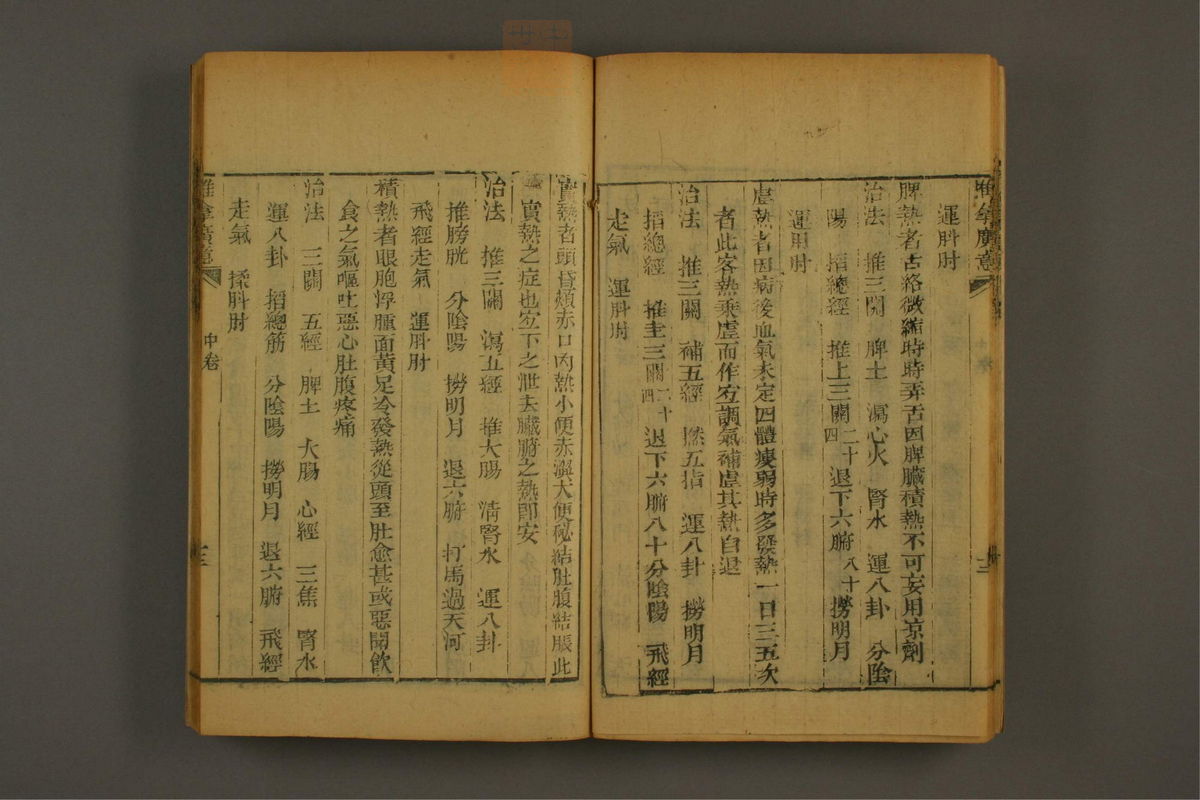 運𣁳肘
脾熱者舌絡微縮時時弄舌因脾臟積熱不可妄用凉劑
治法 推三關 脾土 瀉心火 腎水 運八卦 分陰
陽 掐總經 推上三關二十四退下六腑八十撈明月
運𣁳肘
虛熱者因病後血氣未定四體瘦弱時多發熱一日三五次
者此客熱乘虛而作宜調氣補虛其熱自退
治法 推三關 補五經 撚五指 運八卦 撈明月
掐總經 推上三關二十四退下六腑八十分陰陽 飛經
走氣 運𣁳肘
實熱者頭昏頰赤口內熱小便赤澀大便秘結肚腹結脹此
實熱之症也宜下之泄去臟腑之熱即安
治法 推三關 瀉五經 推大腸 清腎水 運八卦
推膀胱 分陰陽 撈明月 退六腑 打馬過天河
飛經走氣 運𣁳肘
積熱者眼胞浮腫面黃足冷發熱從頭至肚愈甚或惡聞飲
食之氣嘔吐惡心肚腹疼痛
治法 三關 五經 脾土 大腸 心經 三焦 腎水
運八卦 掐總筋 分陰陽 撈明月 退六腑 飛經
走氣 揉𣁳肘
推拿廣意
中卷
十三